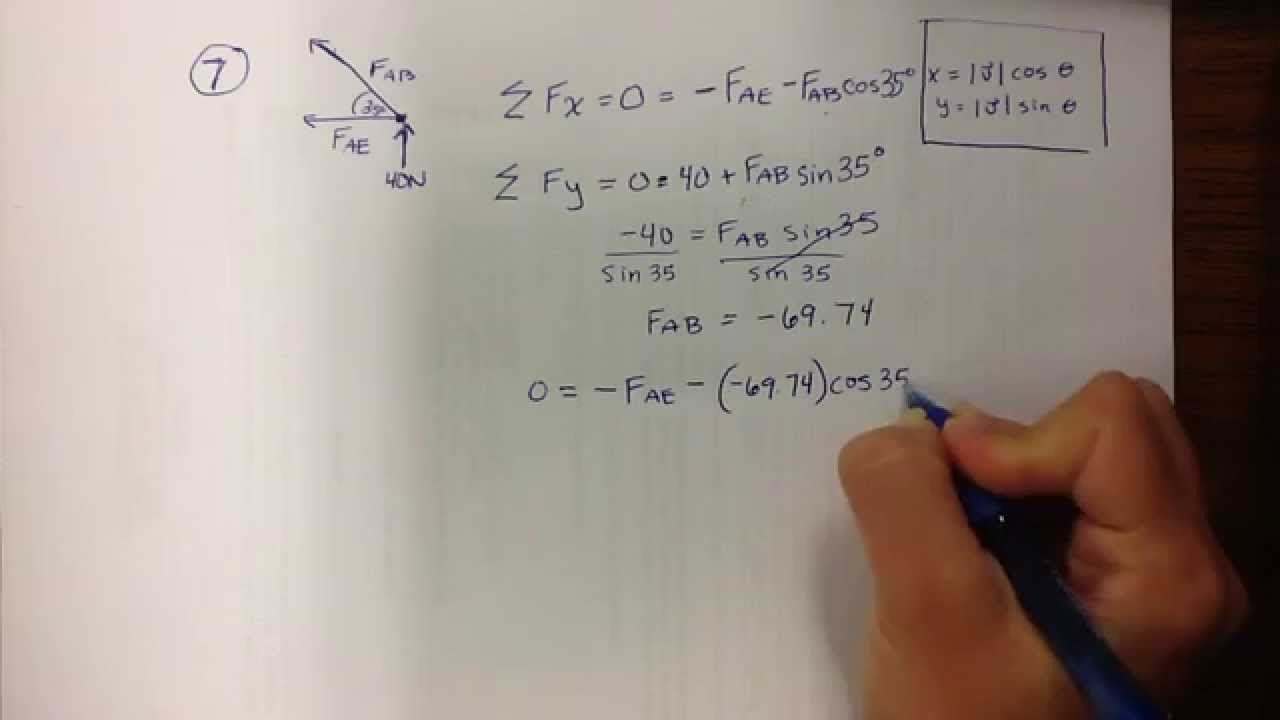 7
F_AB
35°
F_AE
40N
Σ Fx = 0 = -F_AE - F_AB cos35°
x = |v⃗| cos θ
y = |v⃗| sin θ
Σ Fy = 0 = 40 + F_AB sin35°
-40 = F_AB sin35
sin 35 sin 35
F_AB = -69.74
0 = -F_AE - (-69.74) cos 35